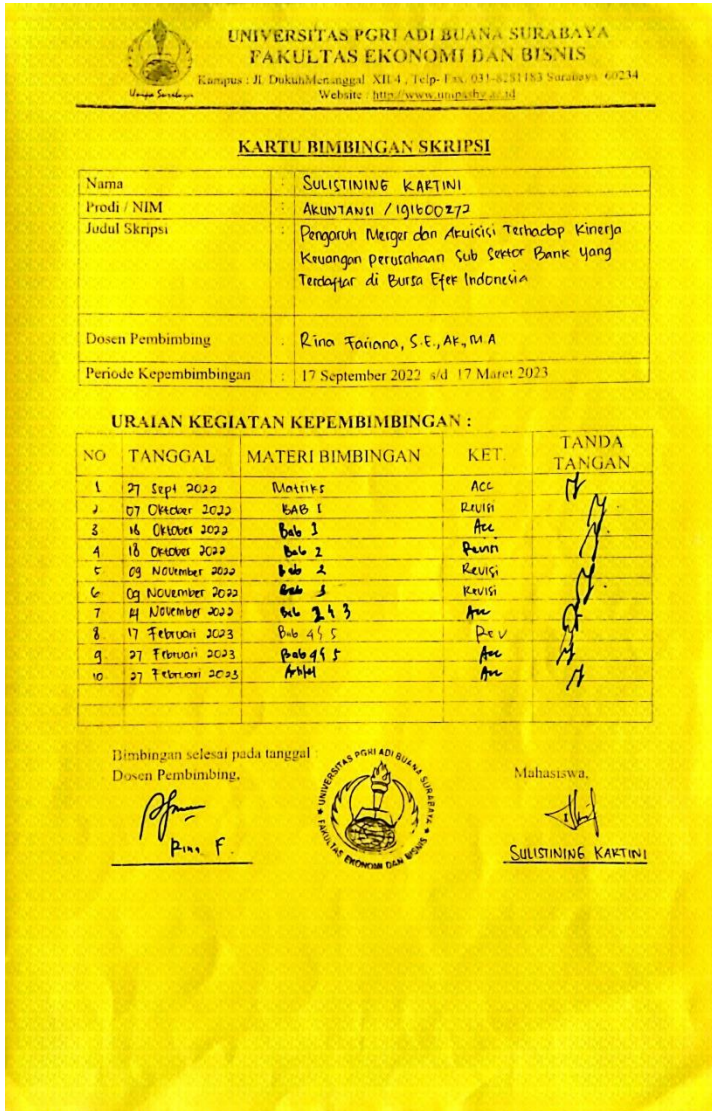 UNIVERSITAS PGRI ADI BUANA SURABAYA
FAKULTAS EKONOMI DAN BISNIS
Kampus : Jl. DukuhMenanggal XII/4, Telp- Fax. 031-8281183 Surabaya 60234
Website : http://www.unipasby.ac.id
Unipa Surabaya
KARTU BIMBINGAN SKRIPSI
Nama : SULISTINING KARTINI
Prodi / NIM : AKUNTANSI / 191600272
Judul Skripsi : Pengaruh Merger dan Akuisisi Terhadap Kinerja
Keuangan perusahaan Sub Sektor Bank yang
Terdaftar di Bursa Efek Indonesia
Dosen Pembimbing : Rina Fariana, S.E., AK., M.A
Periode Kepembimbingan : 17 September 2022 s/d 17 Maret 2023
URAIAN KEGIATAN KEPEMBIMBINGAN :
NO TANGGAL MATERI BIMBINGAN KET. TANDA TANGAN
1 27 Sept 2022 Matriks ACC
2 07 Oktober 2022 BAB I Revisi
3 16 Oktober 2022 Bab 1 Acc
4 18 Oktober 2022 Bab 2 Revisi
5 09 November 2022 Bab 2 Revisi
6 09 November 2022 Bab 3 Revisi
7 14 November 2022 Bab 2 & 3 Acc
8 17 Februari 2023 Bab 4 & 5 Rev
9 27 Februari 2023 Bab 4 & 5 Acc
10 27 Februari 2023 Artikel Acc
Bimbingan selesai pada tanggal :
Dosen Pembimbing, Mahasiswa,
UNIVERSITAS PGRI ADI BUANA SURABAYA
FAKULTAS EKONOMI DAN BISNIS
Rina F. SULISTINING KARTINI